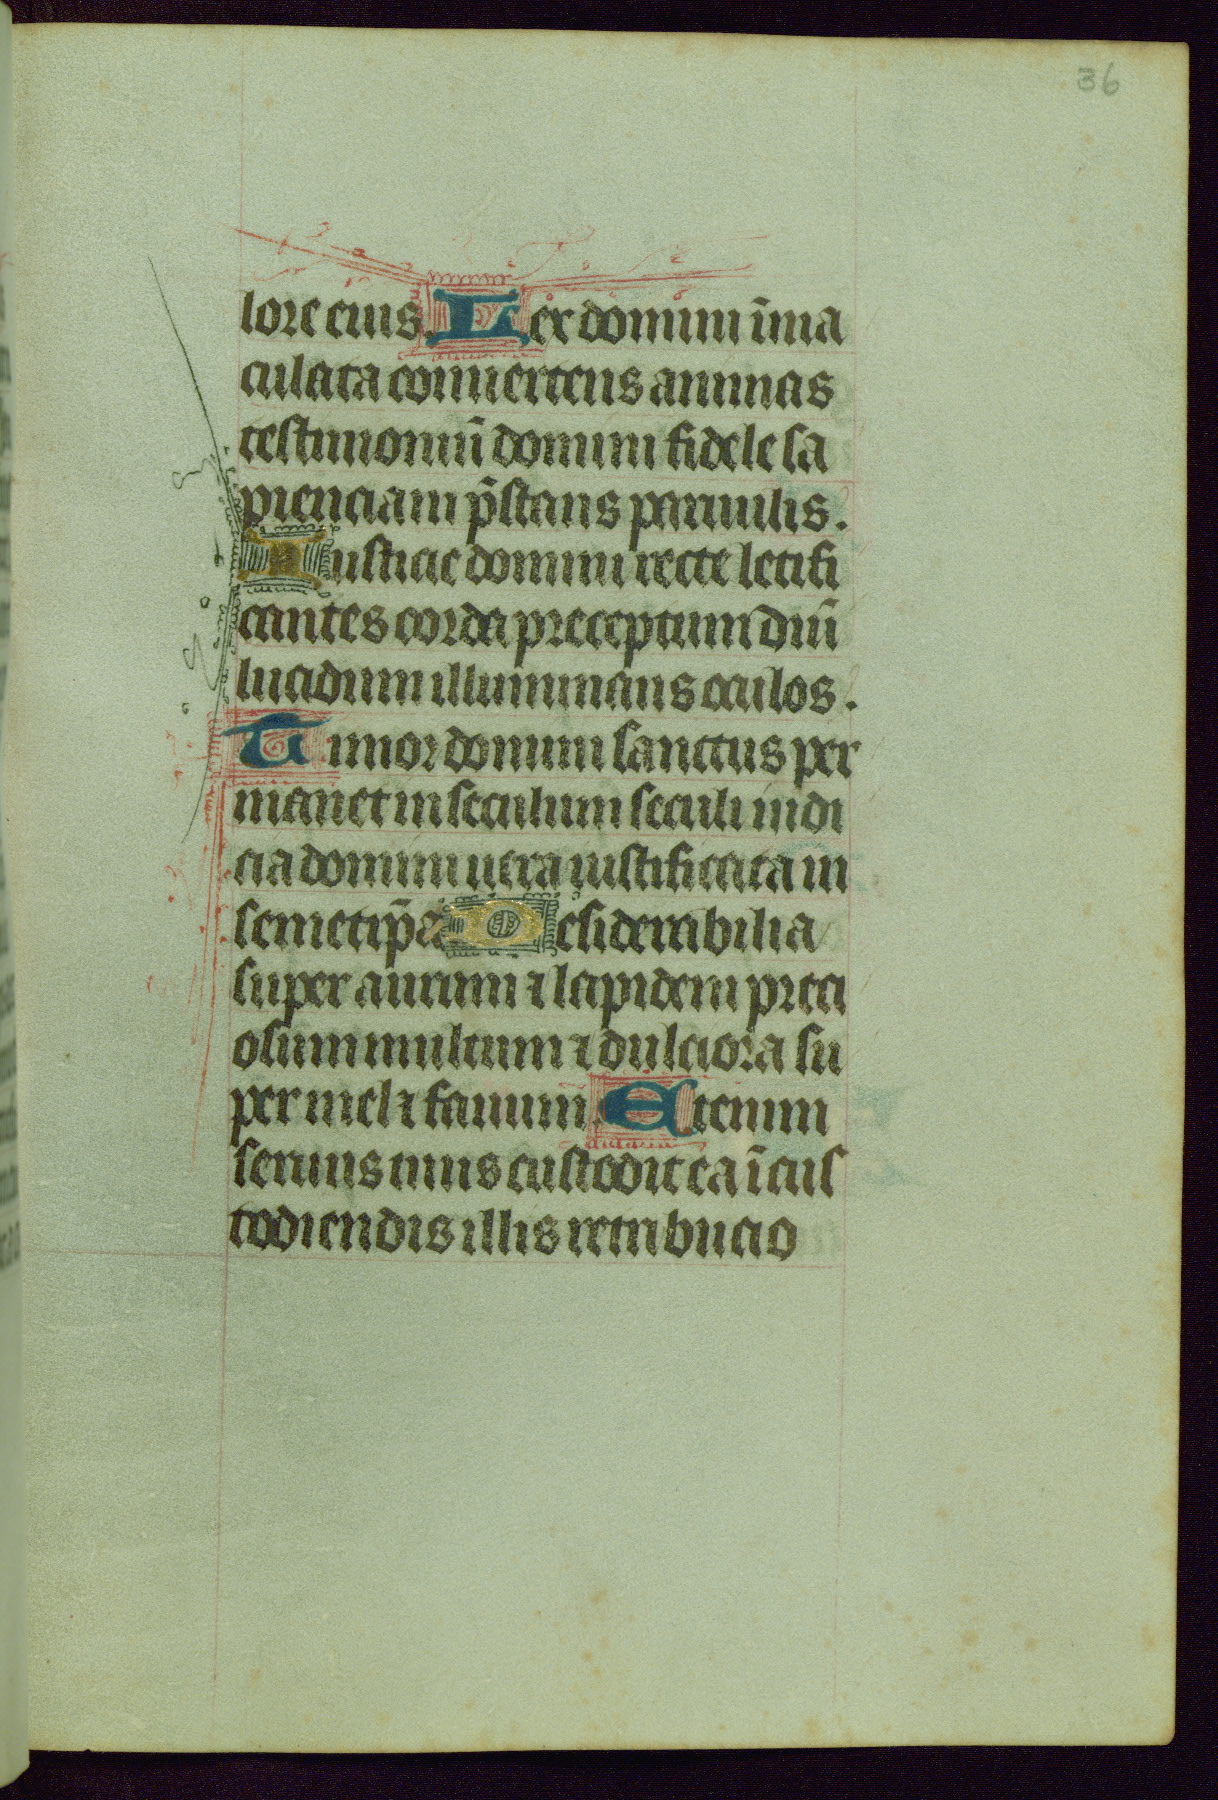 36
lore eius. Lex domini īma
culata conuertens animas
testimoniū domini fidele sa
pienciam p̄stans paruulis.
Iusticie domini recte letifi
cantes corda preceptum dn̄i
lucidum illuminans oculos.
Timor domini sanctus per
manet in seculum seculi iudi
cia domini uera iustificata in
semetip̄a Desiderabilia
super aurum ⁊ lapidem preci
osum multum ⁊ dulciora su
per mel ⁊ fauum. Etenim
seruus tuus custodit ea ī cus
todiendis illis retribucio